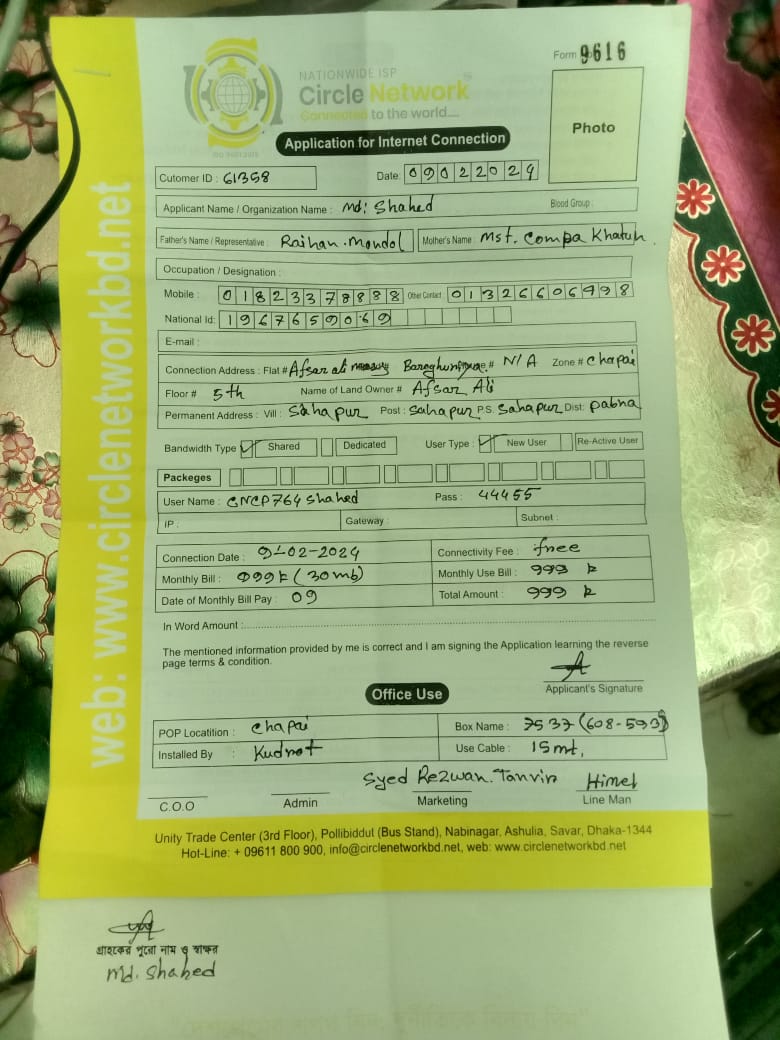 Form 9616
NATIONWIDE ISP
Circle Network
Connected to the world....
ISO 9001:2015
Application for Internet Connection
Photo
Cutomer ID : 61358 Date: 09022024
Applicant Name / Organization Name : Md: Shahed Blood Group :
Father's Name / Representative : Raihan Mondol Mother's Name : Mst. Compa Khatun.
Occupation / Designation :
Mobile : 01823378888 Other Contact 01326606498
National Id: 1967659069
E-mail :
Connection Address : Flat # Afsar ali # N/A Zone # Chapai
Floor # 5th Name of Land Owner # Afsar Ali
Permanent Address : Vill : Sahapur Post : Sahapur P.S. Sahapur Dist: Pabna
Bandwidth Type ✓ Shared Dedicated User Type : ✓ New User Re-Active User
Packeges
User Name : CNCP764 Shahed Pass : 44455
IP : Gateway : Subnet :
Connection Date : 9-02-2024 Connectivity Fee : free
Monthly Bill : 999 (30mb) Monthly Use Bill : 999
Date of Monthly Bill Pay : 09 Total Amount : 999
In Word Amount :
The mentioned information provided by me is correct and I am signing the Application learning the reverse
page terms & condition.
Applicant's Signature
Office Use
POP Locatition : Chapai Box Name : 7537 (608-593)
Installed By : Kudrot Use Cable : 15mt,
Syed Rezwan. Tanvir Himel
C.O.O Admin Marketing Line Man
Unity Trade Center (3rd Floor), Pollibiddut (Bus Stand), Nabinagar, Ashulia, Savar, Dhaka-1344
Hot-Line: + 09611 800 900, info@circlenetworkbd.net, web: www.circlenetworkbd.net
web: www.circlenetworkbd.net
গ্রাহকের পুরো নাম ও স্বাক্ষর
Md. Shahed